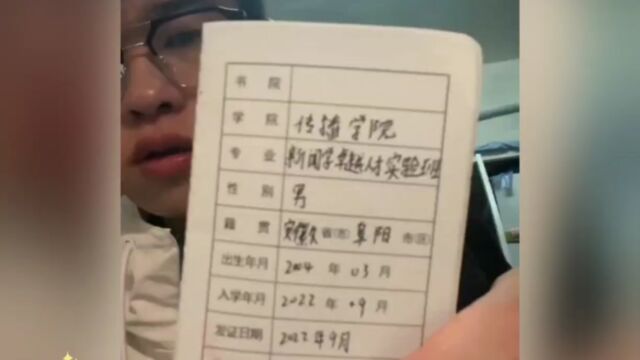 书 院
学 院 传播学院
专 业 新闻学卓越人才实验班
性 别 男
籍 贯 安徽 省(市) 阜阳 市(区)
出生年月 2004 年 03 月
入学年月 2022 年 09 月
发证日期 2022 年 9 月